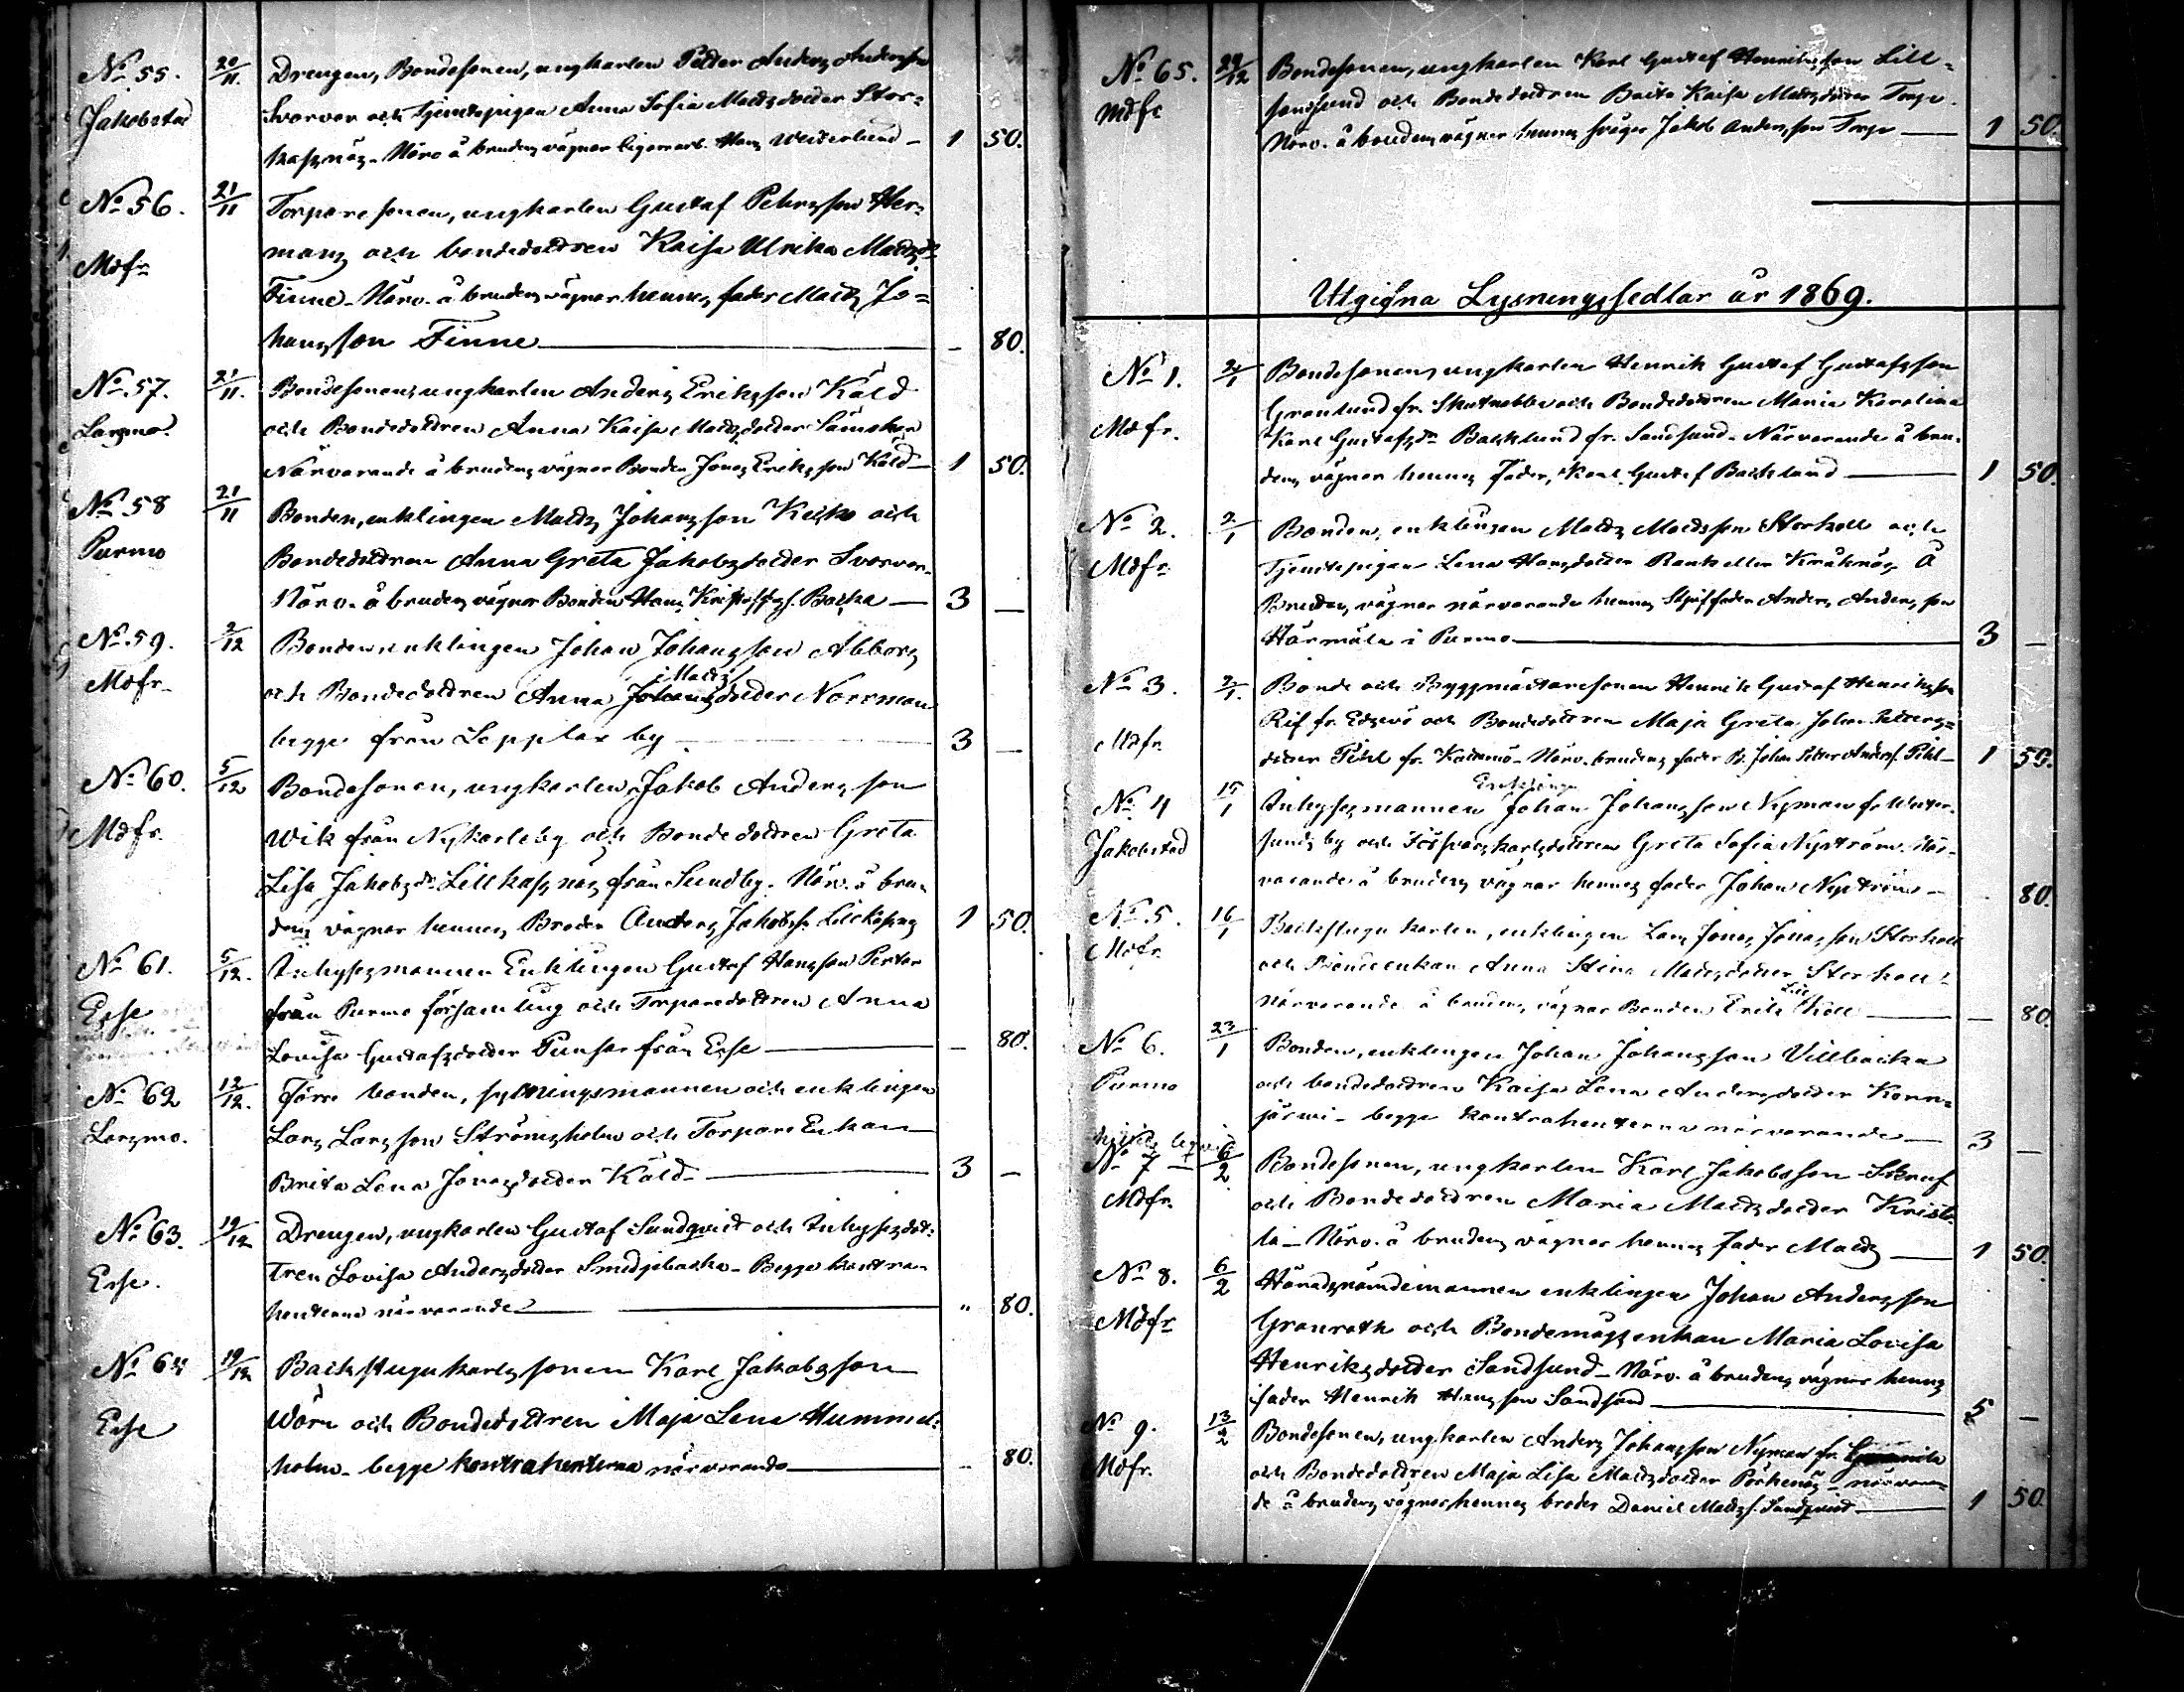 No 55. 20/11 Drengen, Bondesonen, ungkarlen Petter Anders Andersson
Jakobstad Svarvar och Tjenstepigan Anna Sofia Mattsdotter Stor=
kassnäs. Närv. å brudens vägnar Hans Westerlund – 1 50.
No 56. 21/11 Torparesonen, ungkarlen Gustaf Pehrsson Her=
Mdfr mans och bondedottren Kaisa Ulrika Mattsdr
Finne. Närv. å brudens vägnar hennes fader Matts Jo=
hansson Finne – 80.
No 57. 21/11. Bondesonen, ungkarlen Anders Eriksson Käld
Larsmo. och Bondedottren Anna Kaisa Mattsdotter
Närvarande å brudens vägnar Bonden Jonas Eriksson Käld – 1 50.
No 58 21/11 Bonden, enklingen Matts Johansson Keisko och
Purmo Bondedottren Anna Greta Jakobsdotter Svarvar.
Närv. å brudens vägnar Bonden Hans Kristoffers. Backa – 3 –
No 59. 2/12 Bonden, enklingen Johan Johansson Abbors
Mdfr. Matts
och Bondedottren Anna Johansdotter Norrman
begge från Lepplax by 3 –
No 60. 5/12 Bondesonen, ungkarlen Jakob Andersson
Mdfr. Wik från Nykarleby och Bondedottren Greta
Lisa Jakobsdr Lillkassnäs från Sundby. Närv. å bru=
dens vägnar hennes Broder Anders Jakobss. Lillkassnäs 1 50.
No 61. 5/12. Inhysesmannen Enklingen Gustaf Hansson
Esse från Purmo församling och Torparedottren Anna
Lovisa Gustafsdotter Punsar från Esse – 80.
No 62 12/12. Förre bonden, sytningsmannen och enklingen
Larsmo. Lars Larsson Strömsholm och Torpare Enkan
Brita Lena Jonasdotter Käld – 3 –
No 63. 19/12 Drengen, ungkarlen Gustaf Sundqvist och Inhysesdot=
Esse. tren Lovisa Andersdotter Smedjebacka – Begge kontra=
henterna närvarande – " 80.
No 64 19/12 Backstugukarlssonen Karl Jakobsson
Esse Wörn och Bondedottren Maja Lena Hummel=
holm – begge kontrahenterna närvarande – 80.
No 65. 29/12 Bondesonen, ungkarlen Karl Gustaf Henriksson Lill=
Mdfr sandsund och Bondedottren Brita Kaisa Mattsdotter Torp.
Närv. å brudens vägnar hennes svåger Jakob Andersson Torp – 1 50.
Utgifna Lysningssedlar år 1869.
No 1. 2/1 Bondesonen, ungkarlen Henrik Gustaf Gustafsson
Granlund fr. Skutnabba och Bondedottren Maria Karolina
Mdfr. Karl Gustafsdr Backlund fr. Sandsund. Närvarande å bru=
dens vägnar hennes Fader, Karl Gustaf Backlund – 1 50.
No 2. 2/1 Bonden, enklingen Matts Mattsson Storkoll och
Mdfr Tjenstepigan Lena Hansdotter Rank eller Kråknäs Å
Brudens vägnar närvarande hennes Styffader Anders Andersson
Härmäla i Purmo – 3 –
No 3. 2/1. Bonde och Byggmästaresonen Henrik Gustaf Henriksson
Rif fr. Edsevö och Bondedottren Maja Greta Johan Petters=
Mdfr. dotter Pihl fr. Katternö – Närv. brudens fader B. Johan Petter Anderss. Pihl – 1 50.
Enklingen
No 4 15/1 Inhysesmannen Johan Johansson Nyman fr Wester=
Jakobstad sunds by och Försvarskarlsdottren Greta Sofia Nyström. När=
varande å brudens vägnar hennes fader Johan Nyström – 80.
No 5. 16/1 Backstugu karlen, enklingen Lars Jonas Jonasson Storkoll
Mdfr. och Bondeenkan Anna Stina Mattsdotter Storkoll.
Lill
Närvarande å brudens vägnar Bonden Erik Koll – 80.
No 6. 23/1 Bonden, enklingen Johan Johansson Villbacka
Purmo och bondedottren Kaisa Lena Andersdotter Korn=
järwi – begge kontrahenterna närvarande – 3 –
No 7 – 6/2 Bondesonen, ungkarlen Karl Jakobsson Skruf
Mdfr. och Bondedottren Maria Mattsdotter Krist=
la – Närv. å brudens vägnar hennes fader Matts – 1 50.
No 8. 6/2 Häradsnämdemannen enklingen Johan Andersson
Mdfr Granroth och Bondemågsenkan Maria Lovisa
Henriksdotter Sandsund – Närv. å brudens vägnar hennes
fader Henrik Hansson Sandsund – 5 –
No 9. 13/2 Bondesonen, ungkarlen Anders Johansson Nyman fr.
Mdfr. och Bondedottren Maja Lisa Mattsdotter Pörkenäs – närvaran=
de å brudens vägnar hennes broder Daniel Matts. Sundqvist – 1 50.